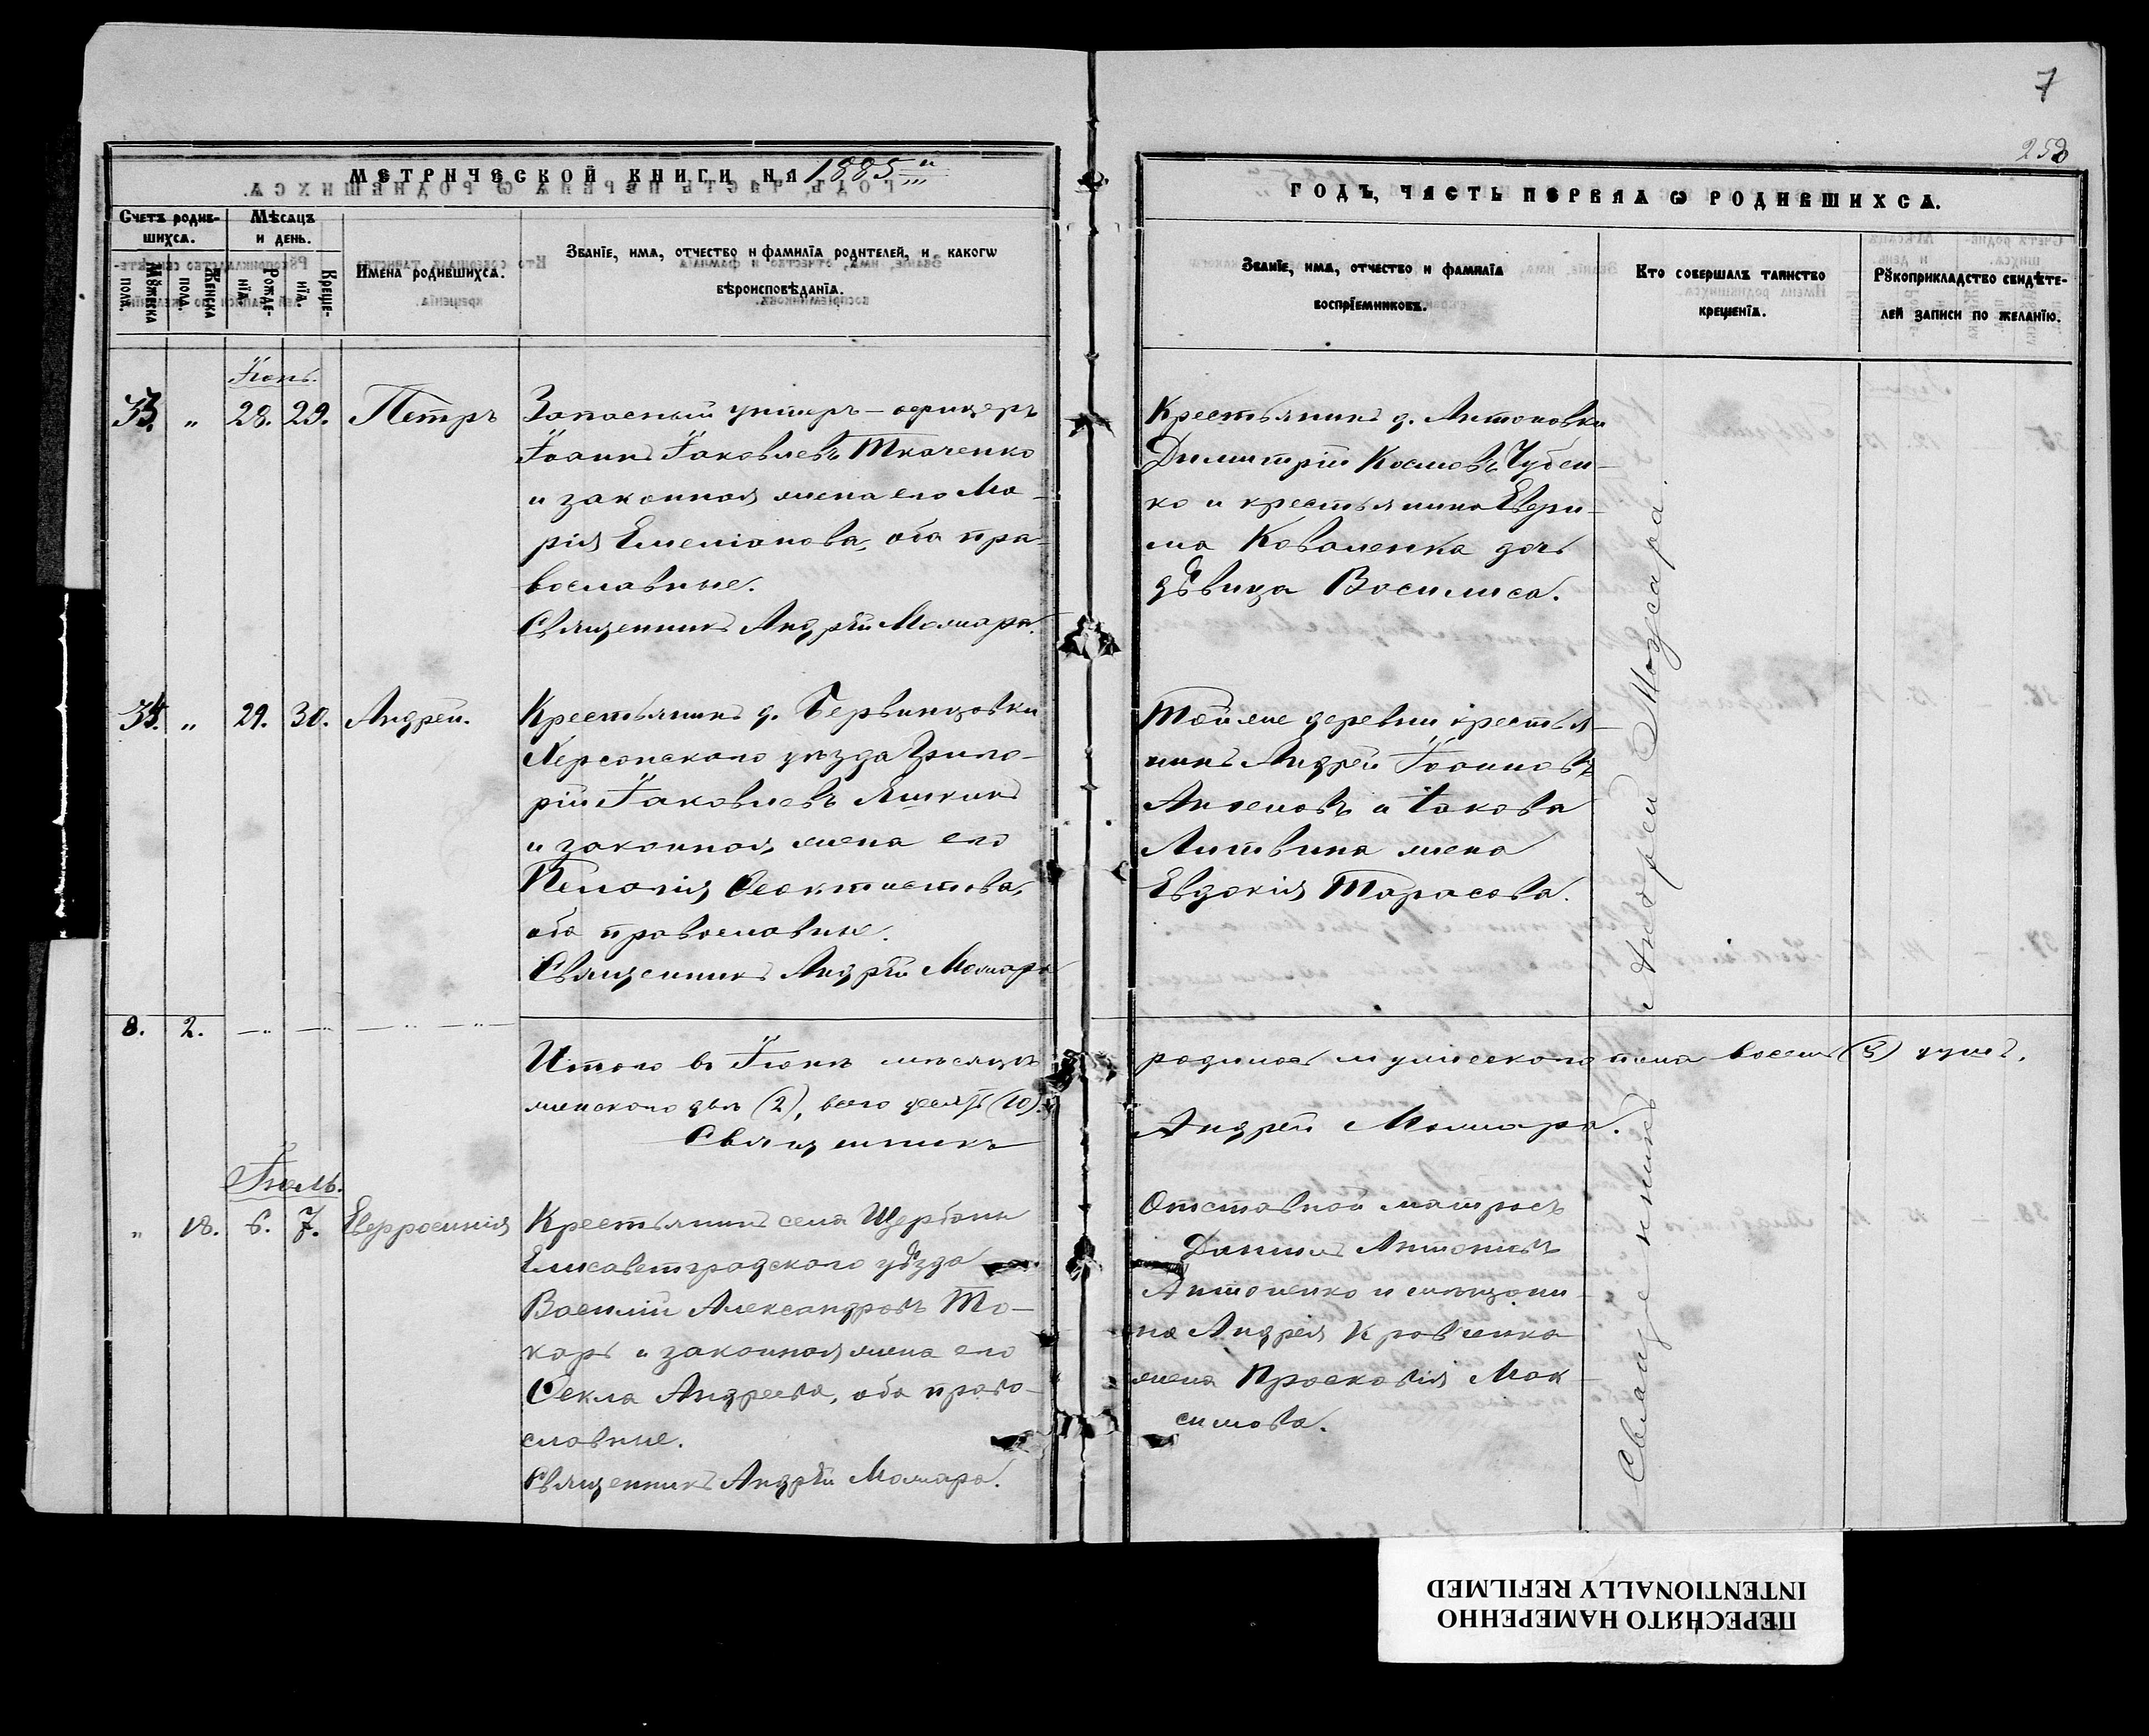 7
258
МЕТРИЧЕСКОЙ КНИГИ НА 1885й
ГОДЪ, ЧАСТЬ ПЕРВАЯ Ѡ РОДИВШИХСѦ.
Счетъ родив-
шихсѧ.
Мѣсѧцъ
и день.
Мꙋжеска
пола.
Женска
пола.
Рожде-
нїѧ.
Креще-
нїѧ.
Имена родившихсѧ.
Званїе, имѧ, отчество и фамилїѧ родителей, и какогѡ
вѣроисповѣданїѧ.
Званїе, имѧ, отчество и фамилїѧ
воспрїемниковъ.
Кто совершалъ таинство
крещенїѧ.
Рꙋкоприкладство свидѣте-
лей записи по желанїю.
Іюнь.
33. " 28. 29. Петръ
Запасный унтеръ-офицеръ
Іоаннъ Іаковлевъ Ткаченко
и законная жена его Ма-
рія Емеліанова, оба пра-
вославные.
Священникъ Андрей
Крестьянинъ д. Антоновки
Димитрій Космовъ Чубен-
ко и крестьянина Ефри-
ма Коваленка дочь
дѣвица Василиса.
34. " 29. 30. Андрей.
Крестьянинъ д.
Херсонскаго уѣзда Григо-
рій Іаковлевъ
и законная жена его
Пелагія Ѳеоктистова,
оба православные.
Священникъ Андрей
Тойже деревни крестья-
нинъ Андрей Іоанновъ
и Іакова
Литвина жена
Евдокія Тарасова.
8. 2.
Итого въ Іюнѣ мѣсяцѣ родилось мужескаго пола восемь (8) душъ,
женскаго двѣ (2), всего десять (10).
Священникъ Андрей
Іюль.
" 18. 6. 7. Евфросинія
Крестьянинъ села Щербани
Елисаветградскаго уѣзда
Василій Александровъ То-
карь и законная жена его
Ѳекла Андреева, оба право-
славные.
Священникъ Андрей
Отставной матросъ
Даніилъ Антоніевъ
Антоненко и мѣщани-
на Андрея Кравченка
жена Праскевія Мак-
симова.
Священникъ Андрей
ПЕРЕСНЯТО НАМЕРЕННО
INTENTIONALLY REFILMED